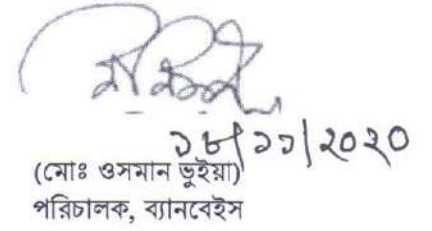 ১৮/১১/২০২০
(মোঃ ওসমান ভূইয়া)
পরিচালক, ব্যানবেইস